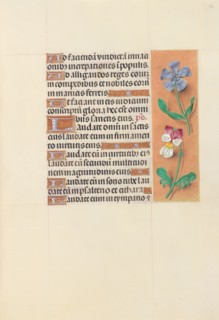 Ad faciendã vindictã in nati
onibꝰ increpationes ĩ populis.
Ad alligandos reges eorũ
in compedibus et nobiles eorũ
in manicis ferreis.
Ut faciant in eis iudicium
conscriptũ gloria hec est omni
bus sanctis eius. ps.
Laudate dnm̃ in sanctis
eius laudate eum in firmamen
to virtutis eius.
Laudate eũ in virtutibꝰ eiꝰ
laudate eũ secundũ multitudi
nem magnitudinis eius.
Laudate eũ in sono tube lau
date eũ in psalterio et cithara
Laudate eum in tympano et